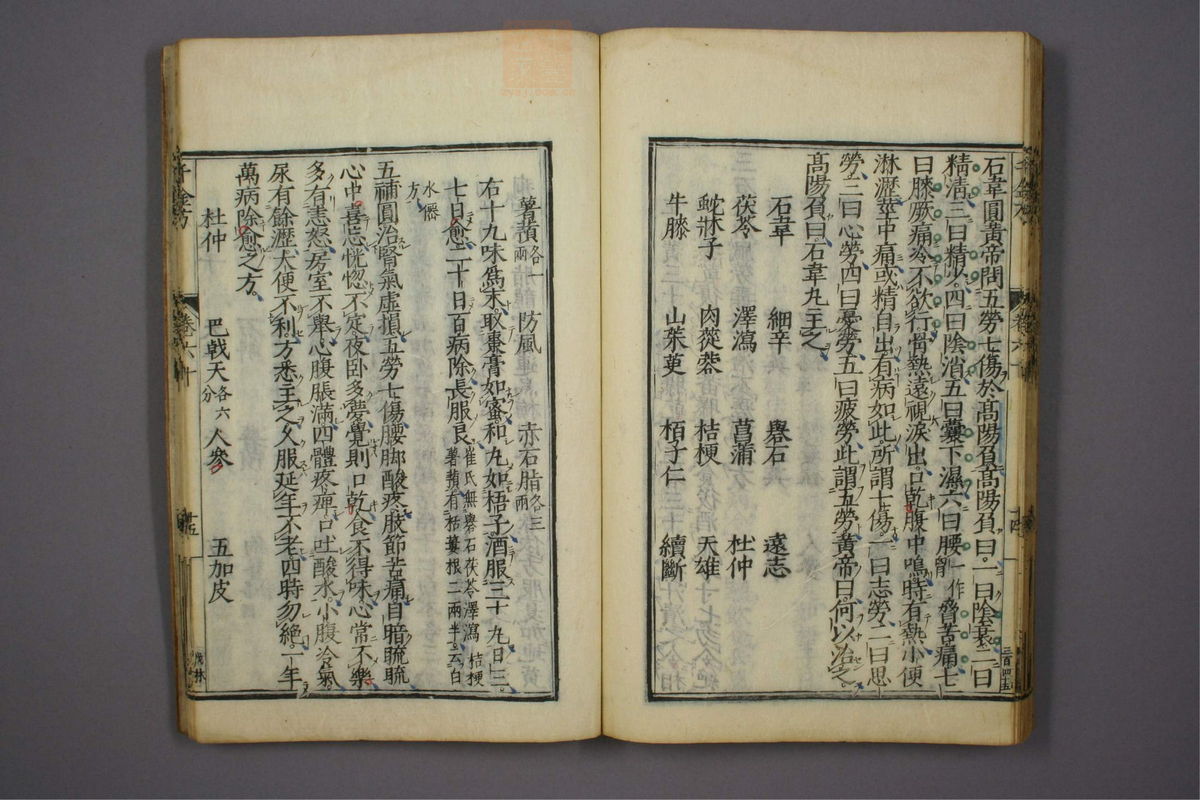 石韋圓黃帝問五勞七傷於髙陽負髙陽負曰一曰陰衰二曰
精清三曰精少四曰陰消五曰囊下濕六曰腰一作𦛗脅苦痛七
曰膝厥痛冷不欲行骨熱遠視淚出口乾腹中鳴時有熱小便
淋瀝莖中痛或精自出有病如此所謂七傷一曰志勞二曰思
勞三曰心勞四曰憂勞五曰疲勞此謂五勞黃帝曰何以治之
髙陽負曰石韋丸主之
石韋 細辛 礜石 遠志
茯苓 澤瀉 菖蒲 杜仲
蛇牀子 肉蓯蓉 桔梗 天雄
牛膝 山茱萸 栢子仁 續斷
薯蕷各一兩 防風 赤石脂各三兩
右十九味爲末取棗膏如蜜和丸如梧子酒服三十丸日三
七日愈二十日百病除長服良崔氏無礜石茯苓澤瀉桔梗薯蕷有栝蔞根二兩半云白
水僊方
五補圓治腎氣虛損五勞七傷腰脚酸疼肢節苦痛目暗䀮䀮
心中喜忘恍惚不定夜卧多夢覺則口乾食不得味心常不樂
多有恚怒房室不舉心腹脹滿四體疼痺口吐酸水小腹冷氣
尿有餘瀝大便不利方悉主之久服延年不老四時勿絶一年
萬病除愈之方
杜仲 巴戟天各六分 人參 五加皮
千金方
卷六十